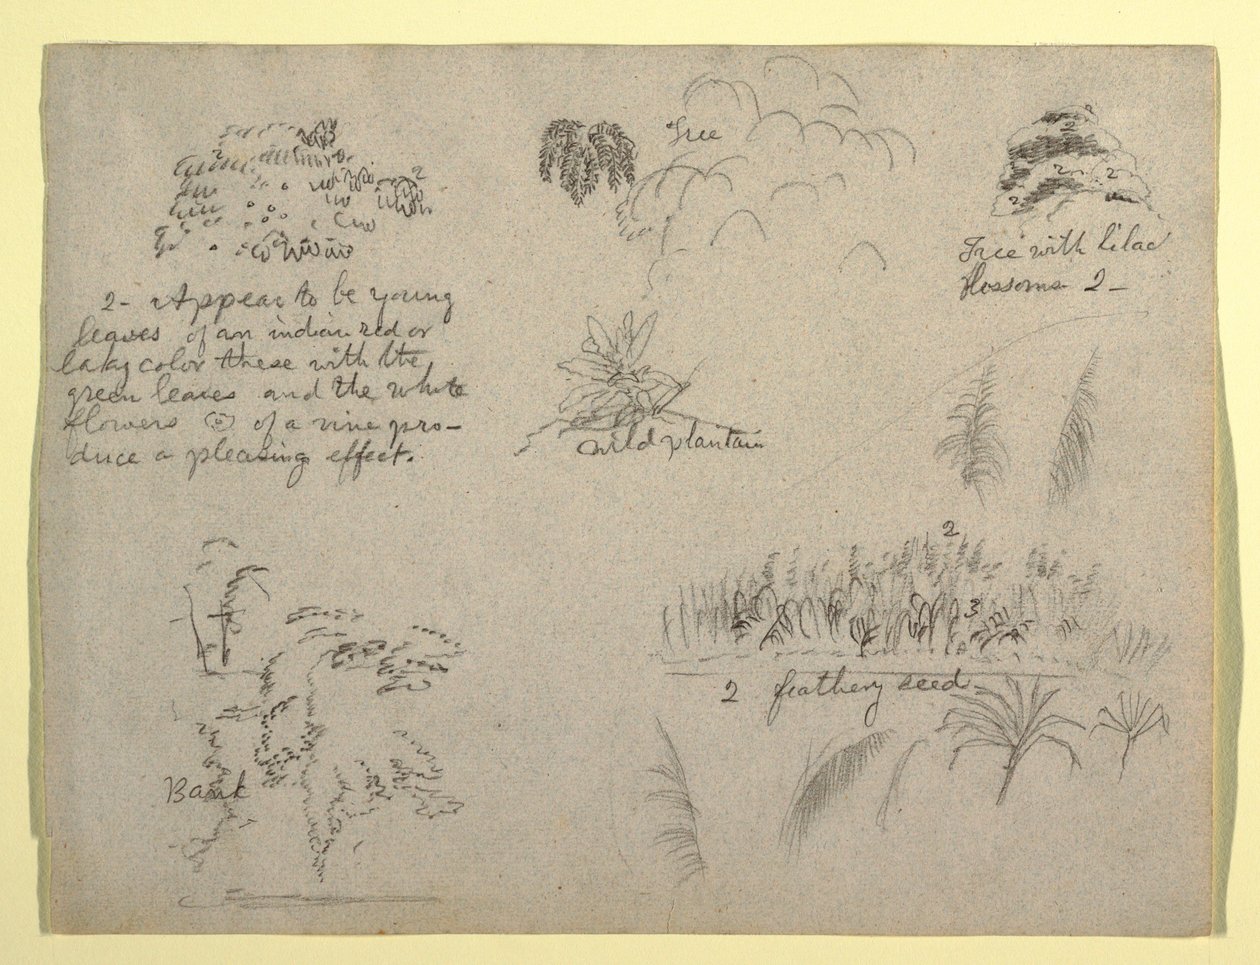 2
2
Tree
2
2
2
2
Tree with lilac
blossoms 2-
2- Appear to be young
leaves of an indian red or
laky color these with the
green leaves and the white
flowers of a vine pro-
duce a pleasing effect.
wild plantain
2
3
2 feathery seed
Bank